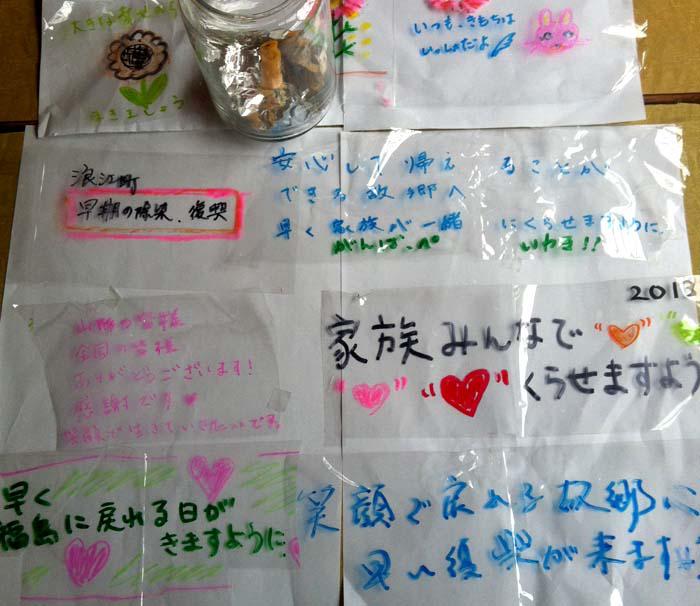 大きな
まきましょう
いつも、きもちは
いっしょだよ
浪江町
早期の除染、復興
安心して帰えることが
できる故郷へ
早く家族が一緒にくらせますように、
がんばっぺ いわき!!
2013
家族みんなで
くらせますよう
の皆様
全国の皆様
ありがとうございます!
感謝です
早く
福島に戻れる日が
きますように、
笑顔で戻れる故郷に
早い復興が来ます